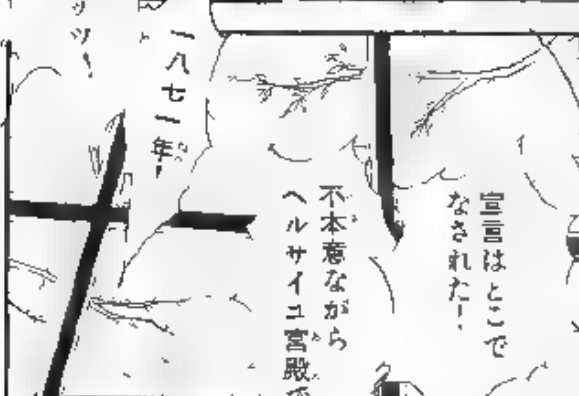 宣言はどこで
なされた!
不本意ながら
ベルサイユ宮殿で
一八七一年!
ッ!